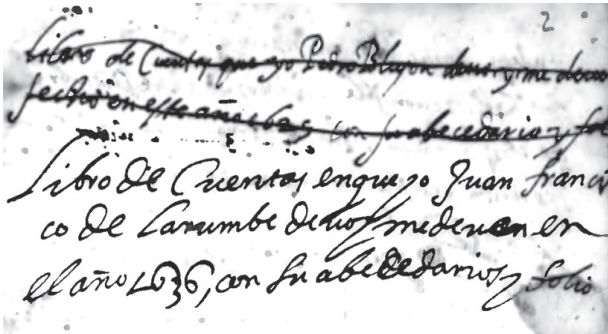 2
Libro de Cuentas que yo Pedro devo y me deven
fecho en este año con su abecedario y fol
Libro de Cuentas en que yo Juan francis
co de Larumbe devo y me deven en
el año 1636, con su abecedario y folio